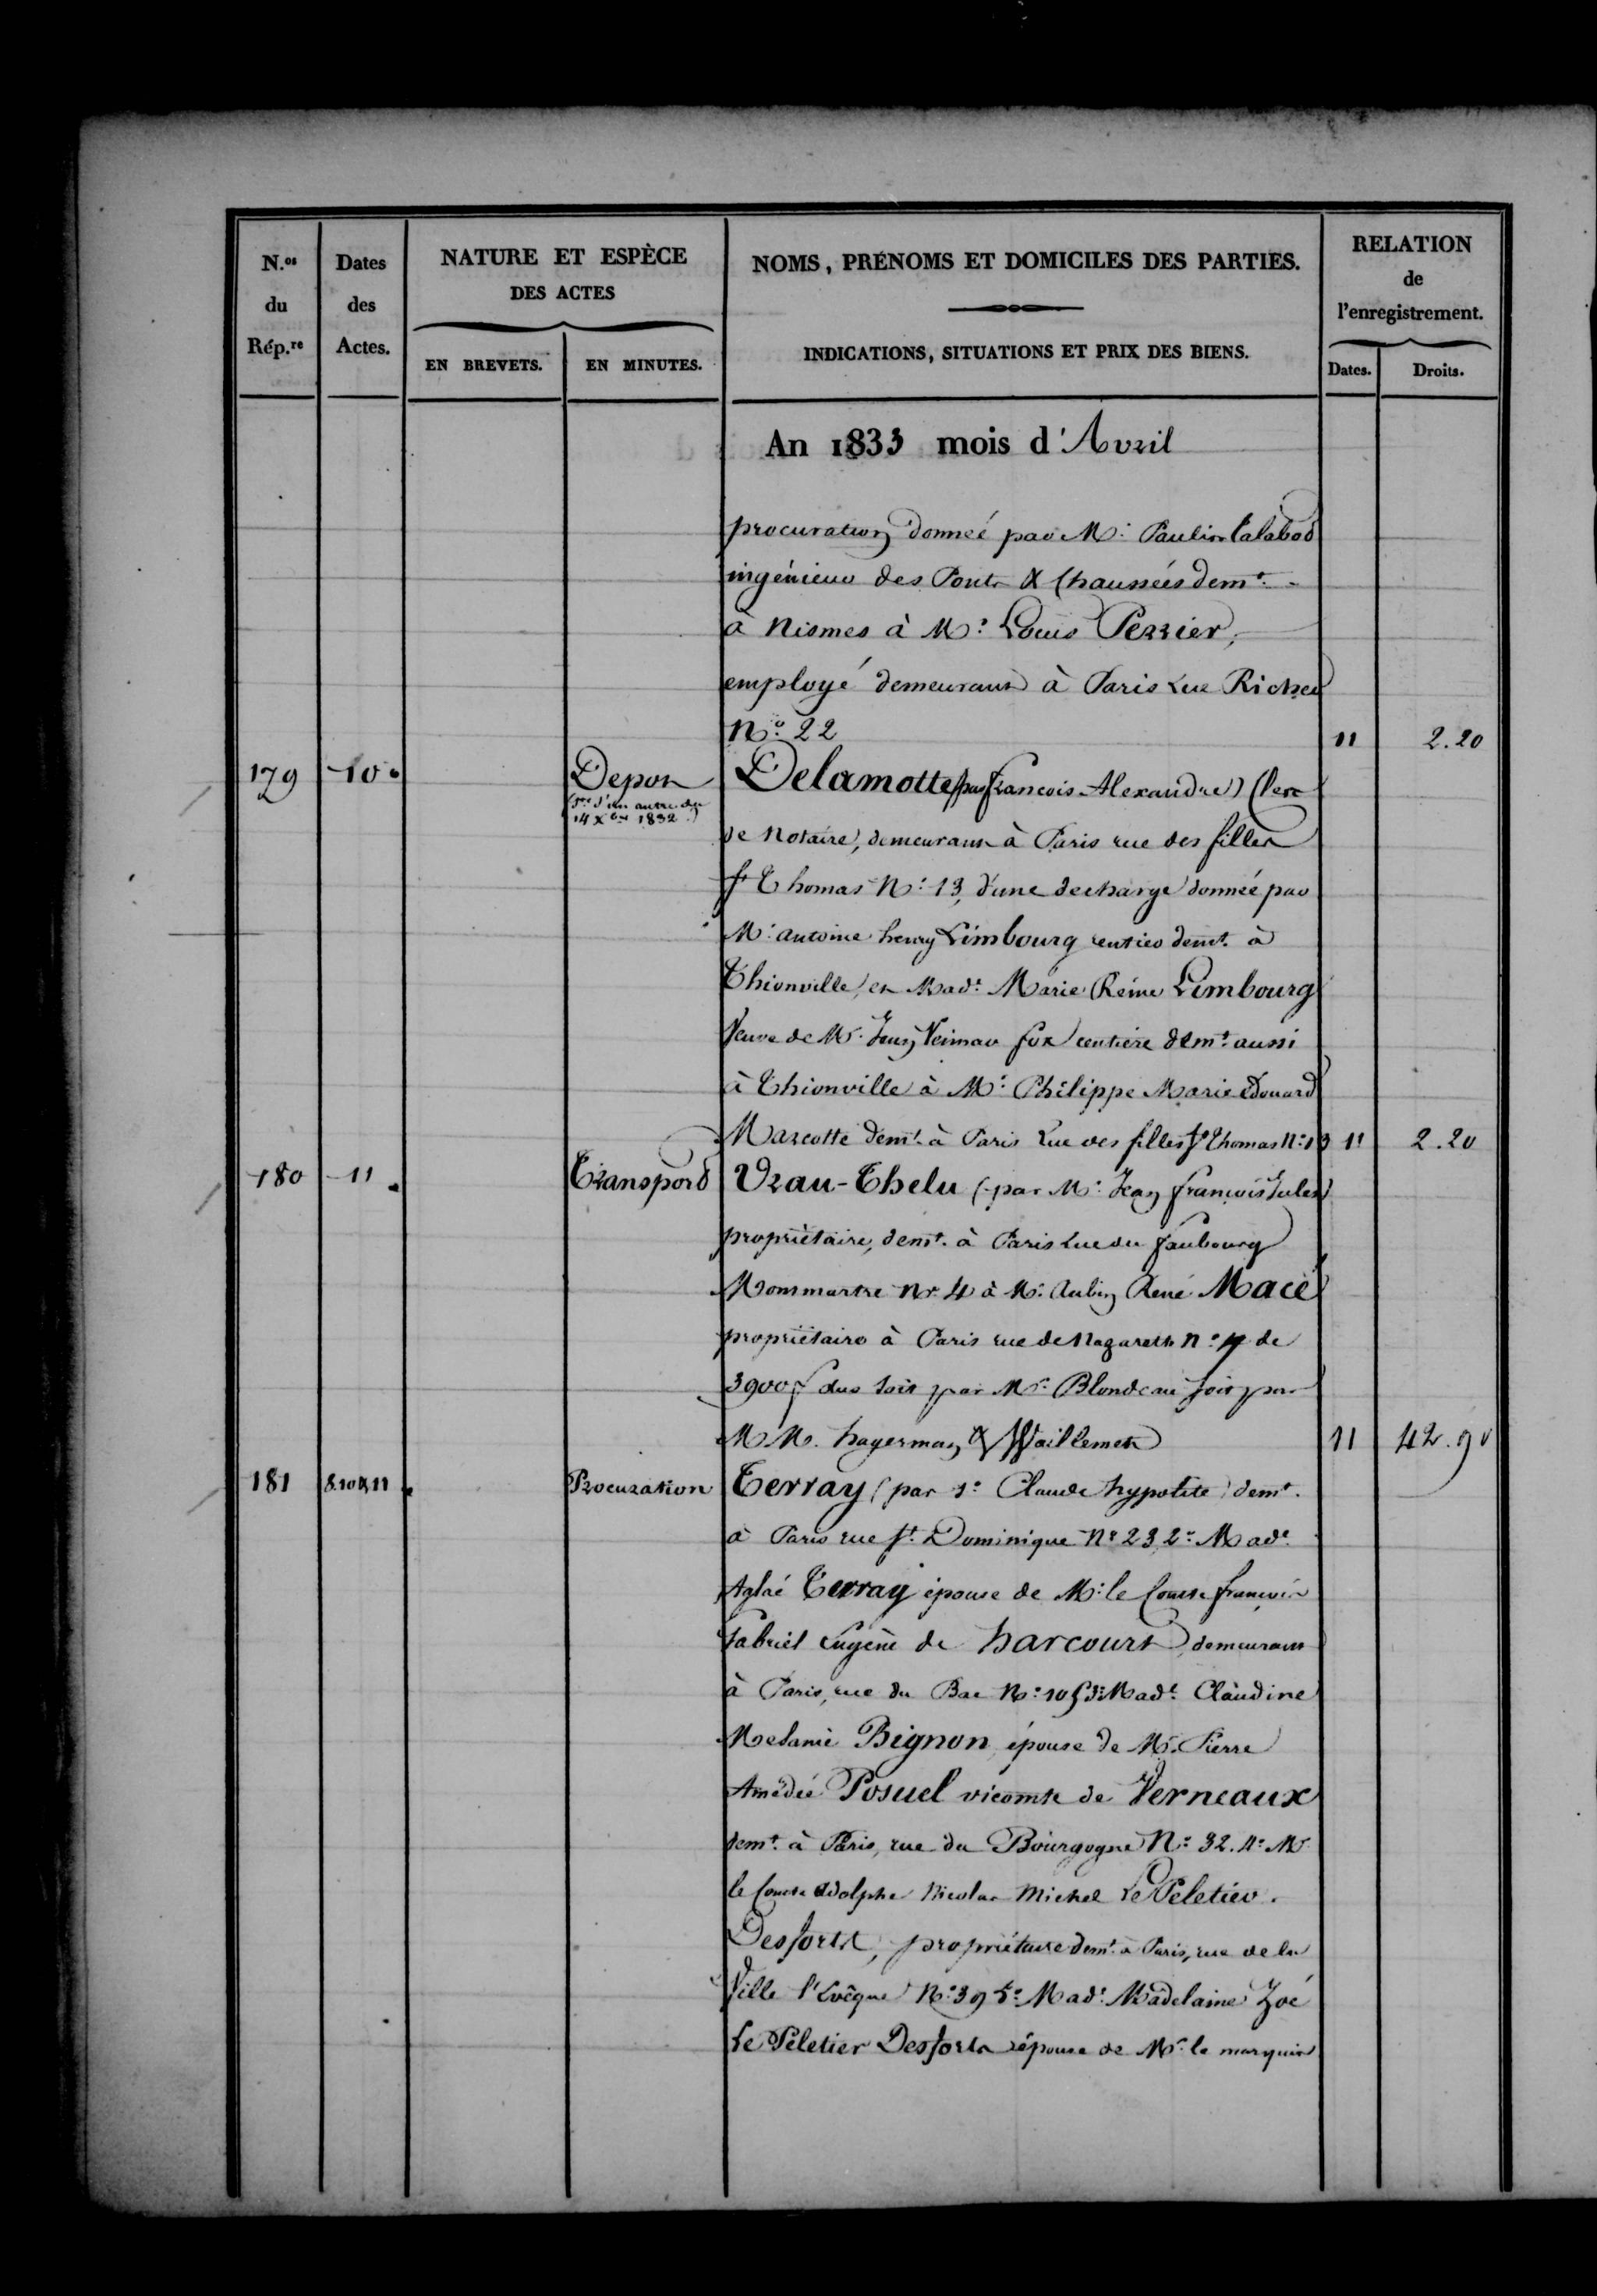 N.os du Rép.re
Dates des Actes.
NATURE ET ESPÈCE DES ACTES
EN BREVETS.
EN MINUTES.
NOMS, PRÉNOMS ET DOMICILES DES PARTIES.
INDICATIONS, SITUATIONS ET PRIX DES BIENS.
RELATION de l'enregistrement.
Dates.
Droits.
An 1833 mois d'Avril
procuration donneé par Mr. Paulin Talabot
ingénieur des Ponts & Chausseés demt.
à Nismes à Mr. Louis Perrier,
employé demeurant à Paris Rue Richer
No. 22 11 2.20
179 10 Depot Delamotte (par François Alexandre) Clerc
(Pce d'un autre du
14 Xbre 1832.)
de Notaire, demeurant à Paris rue des filles
St Thomas No. 13, d'une decharge donneé par
Mr. antoine henry Limbourg rentier demt. à
Thionville, et Made. Marie Reine Limbourg
Veuve de Mr. Jean fox rentiere demt. aussi
à Thionville à Mr. Philippe Marie Edouard
Marcotte demt. à Paris Rue des filles St Thomas No. 13 11 2.20
180 11 Transport Vrau-Thelu (par Mr. Jean françois Jules)
propriétaire, demt. à Paris Rue du faubourg
Montmartre No. 4 à Mr. Aubin René Macé
propriétaire à Paris rue de Nazareth No. de
3900f dus soit par Mr. Blondeau soit par
MM. hagerman & 11 42.90
181 8.10&11 Procuration Terray (par 1o. Claude hypolite) demt.
à Paris rue St. Dominique No. 23, 2o. Made.
Aglaé Terray épouse de Mr. le Comte françois
Gabriel Eugène de harcourt, demeurant
à Paris, rue du Bac No. 105 3o. Made. Claudine
Melanie Bignon, épouse de Mr. Pierre
Amédée Posuel vicomte de Verneaux
demt. à Paris, rue de Bourgogne No. 32. 4o. Mr.
le Comte Adolphe Nicolas Michel Le Peletier
Desforts, propriétaire demt. à Paris, rue de la
Ville l'Evêque No. 39 5o. Made. Madelaine Zoé
Le Peletier Desforts épouse de Mr. le marquis